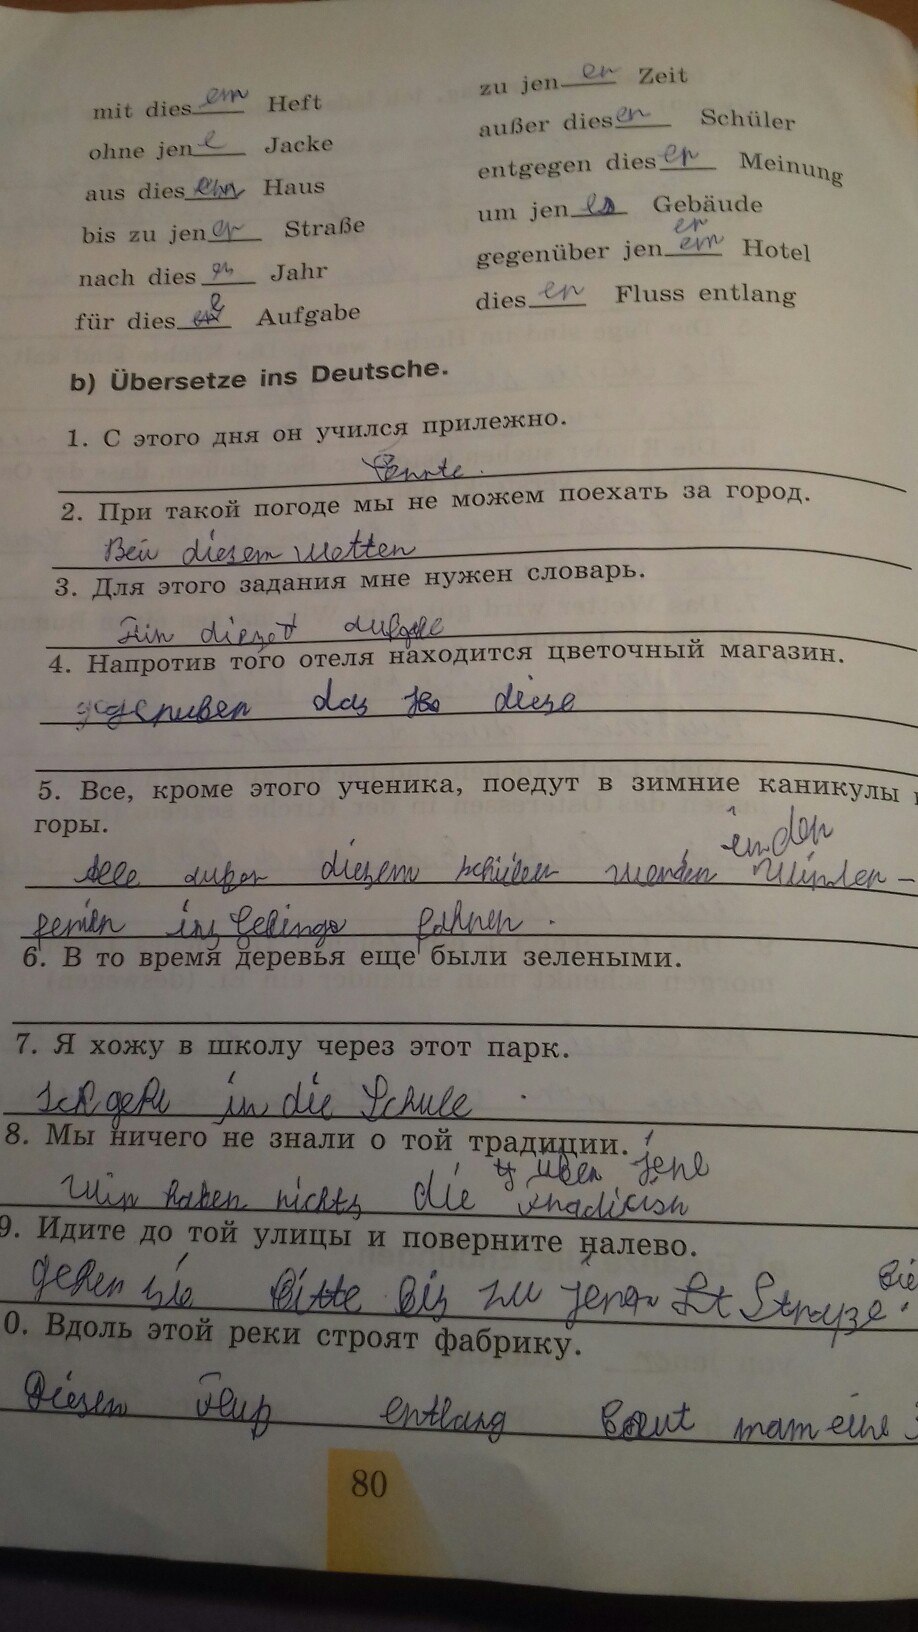 mit diesem Heft
ohne jene Jacke
aus diesem Haus
bis zu jener Straße
nach dies Jahr
für diese Aufgabe
zu jener Zeit
außer diesen Schüler
entgegen dieser Meinung
um jenes Gebäude
er
gegenüber jenem Hotel
diesen Fluss entlang
b) Übersetze ins Deutsche.
1. С этого дня он учился прилежно.
2. При такой погоде мы не можем поехать за город.
Bei diesem Wetter
3. Для этого задания мне нужен словарь.
Für
4. Напротив того отеля находится цветочный магазин.
gegenuber das diese
5. Все, кроме этого ученика, поедут в зимние каникулы
горы.
in den
Alle außer diesem Schüler werden Winter-
ferien ins fahren.
6. В то время деревья еще были зелеными.
7. Я хожу в школу через этот парк.
Ich gehe in die Schule .
8. Мы ничего не знали о той традиции.
über jene
Wir haben nichts die
9. Идите до той улицы и поверните налево.
Gehen Sie bitte bis zu jener
0. Вдоль этой реки строят фабрику.
Diesen Fluß entlang baut man eine
80